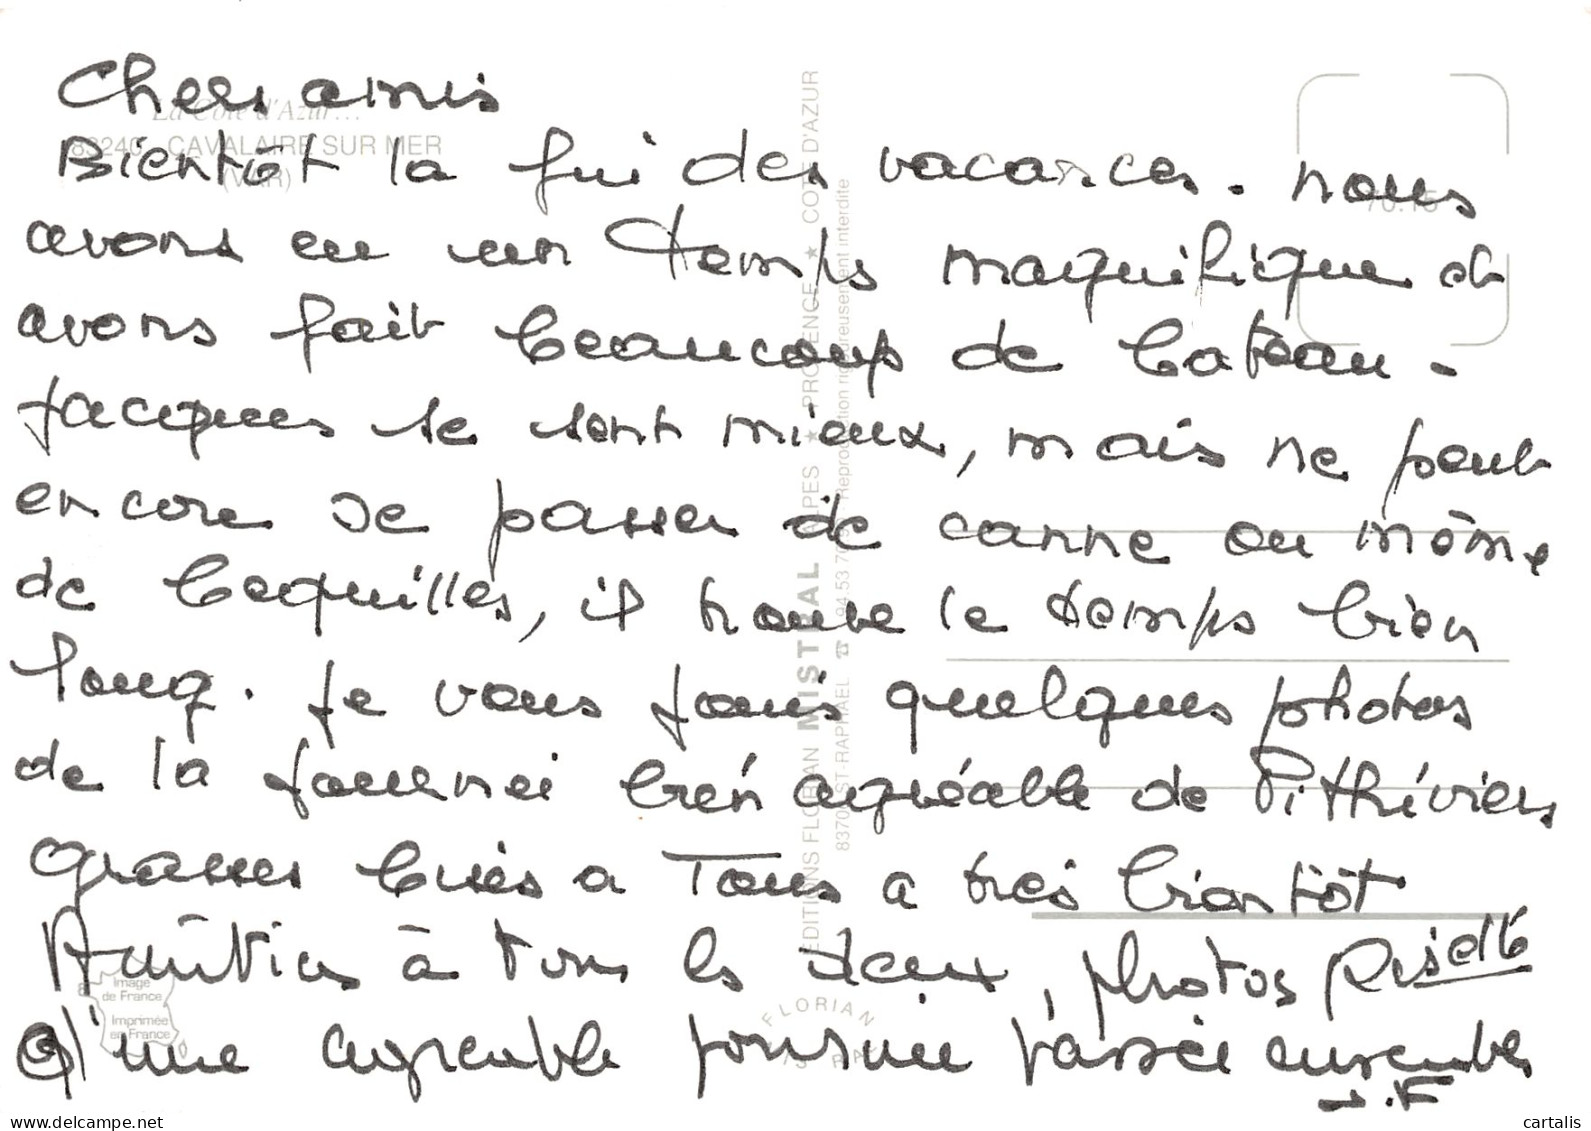 Chers amis
La Côte d'Azur...
83240 CAVALAIRE SUR MER
(VAR)
Bientôt la fin des vacances. nous
avons eu un temps magnifique et
avons fait beaucoup de bateau.
Jacques se sent mieux, mais ne peut
encore se passer de canne ou même
de bequilles, il trouve le temps bien
long. Je vous joins quelques photos
de la journei bien agréable de Pithiviers
grosses bises a Tous a très bientôt
Amitiés à tous les deux, photos Riselle
d'une agreable journée passée ensemble
J.F
EDITIONS FLORIAN MISTRAL ALPES ★ PROVENCE ★ COTE D'AZUR
83700 ST-RAPHAEL ☎ 94 53 Reproduction rigoureusement interdite
Image
de France
Imprimée
en France
FLORIAN